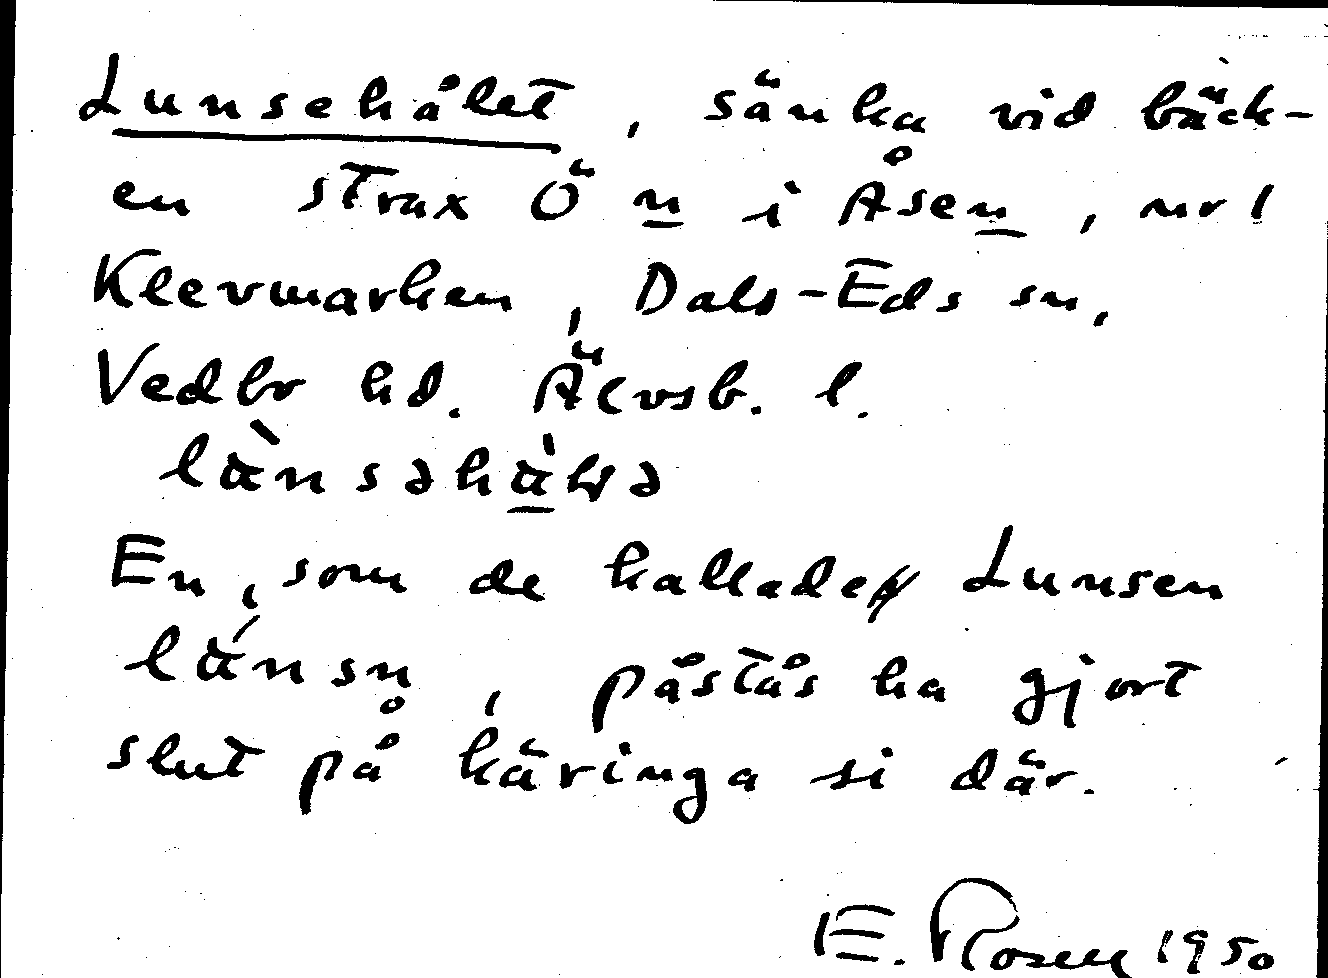 Lunsehålet, sänka vid bäck-
en strax Ö n i Åsen, nr 1
Klevmarken, Dals-Eds sn,
Vedbo hd. Älvsb. l.
En, som de kallade Lunsen
, påstås ha gjort
slut på käringa si där.
E. Rosen 1950